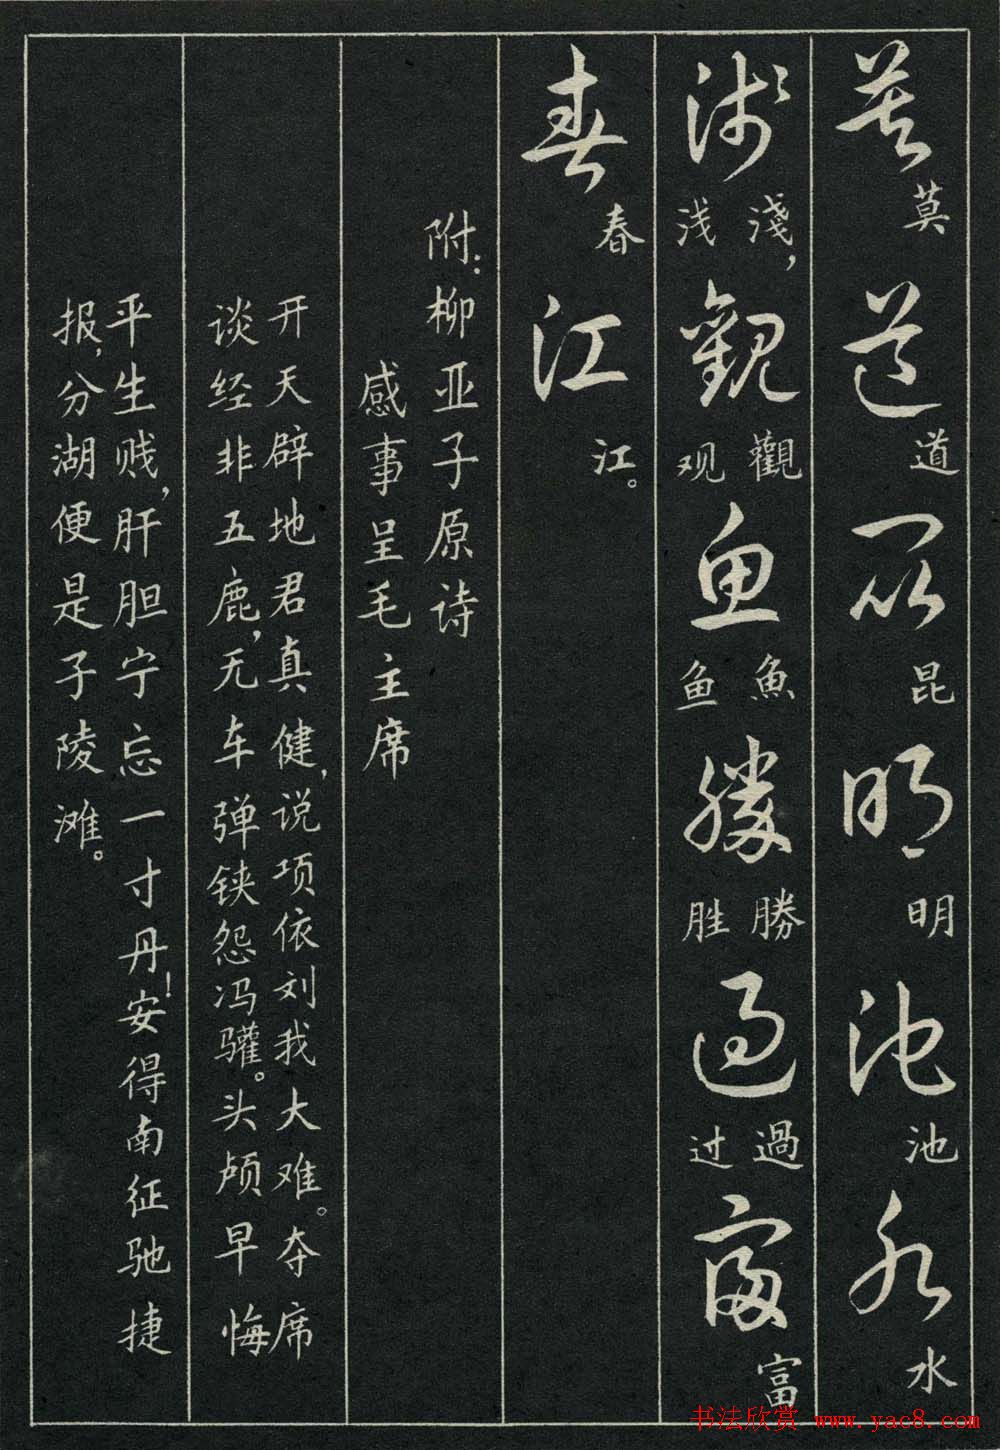 莫 莫 道 道 昆 昆 明 明 池 池 水 水
淺 淺,浅 觀 觀观 魚 魚鱼 勝 勝胜 過 過过 富 富
春 春 江 江。
附:柳亚子原诗
感事呈毛主席
开天辟地君真健,说项依刘我大难。夺席
谈经非五鹿,无车弹铗怨冯驩。头颅早悔
平生贱,肝胆宁忘一寸丹!安得南征驰捷
报,分湖便是子陵滩。
书法欣赏 www.yac8.com